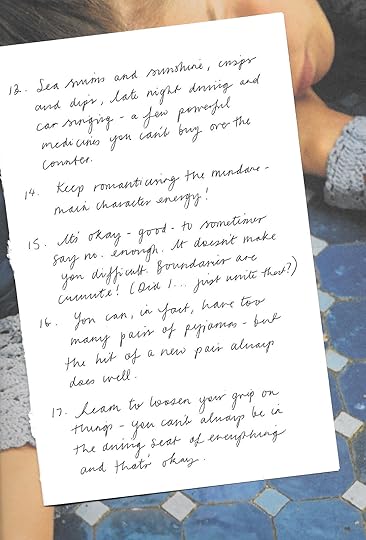 13. Sea swims and sunshine, crisps
and dips, late night driving and
car singing - a few powerful
medicines you can't buy over the
counter.
14. Keep romanticising the mundane -
main character energy!
15. It's okay - good - to sometimes
say no. enough. It doesn't make
you difficult. Boundaries are
cuuuute! (Did I... just write that?)
16. You can, in fact, have too
many pairs of pyjamas - but
the hit of a new pair always
does well.
17. Learn to loosen your grip on
things - you can't always be in
the driving seat of everything
and that's okay.